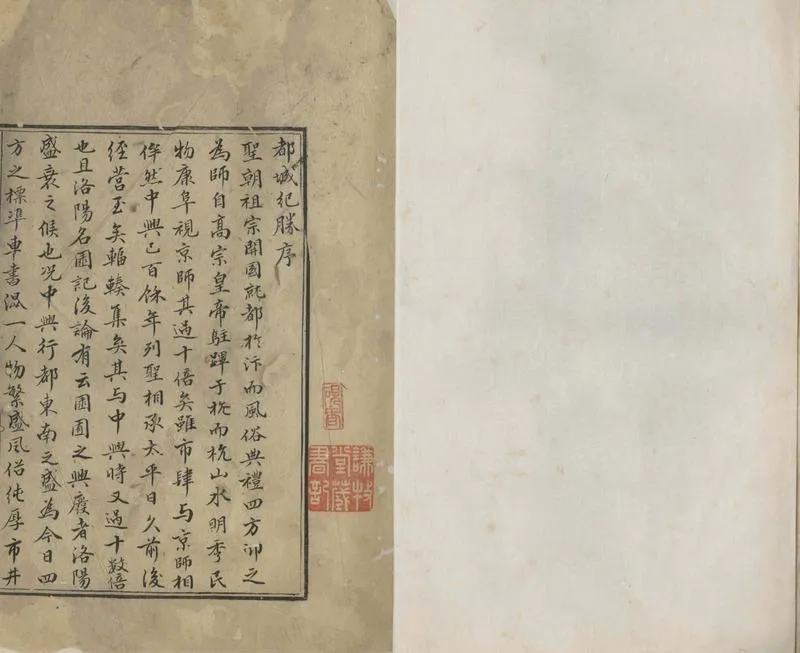 都城紀勝序
聖朝祖宗開國就都於汴而風俗典禮四方仰之
為師自高宗皇帝駐蹕于杭而杭山水明秀民
物康阜視京師其過十倍矣雖市肆与京師相
侔然中興已百餘年列聖相承太平日久前後
經營至矣輻輳集矣其与中興時又過十數倍
也且洛陽名園記後論有云園囿之興廢者洛陽
盛衰之候也况中興行都東南之盛為今日四
方之標準車書混一人物繁盛風俗純厚市井
謙牧堂藏書記